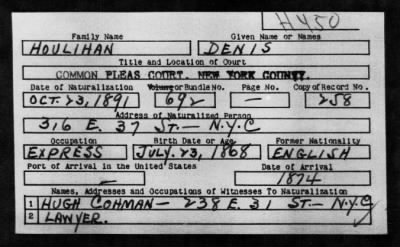 H450
Family Name Given Name or Names
HOULIHAN DENIS
Title and Location of Court
COMMON PLEAS COURT. NEW YORK COUNTY.
Date of Naturalization Volume or Bundle No. Page No. Copy of Record No.
OCT. 23, 1891 692 — 258
Address of Naturalized Person
316 E. 37 ST.— N.Y.C
Occupation Birth Date or Age Former Nationality
EXPRESS JULY. 23, 1868 ENGLISH
Port of Arrival in the United States Date of Arrival
— 1874
Names, Addresses and Occupations of Witnesses To Naturalization
1 HUGH COHMAN— 238 E. 31 ST— N.Y.C
2 LAWYER.